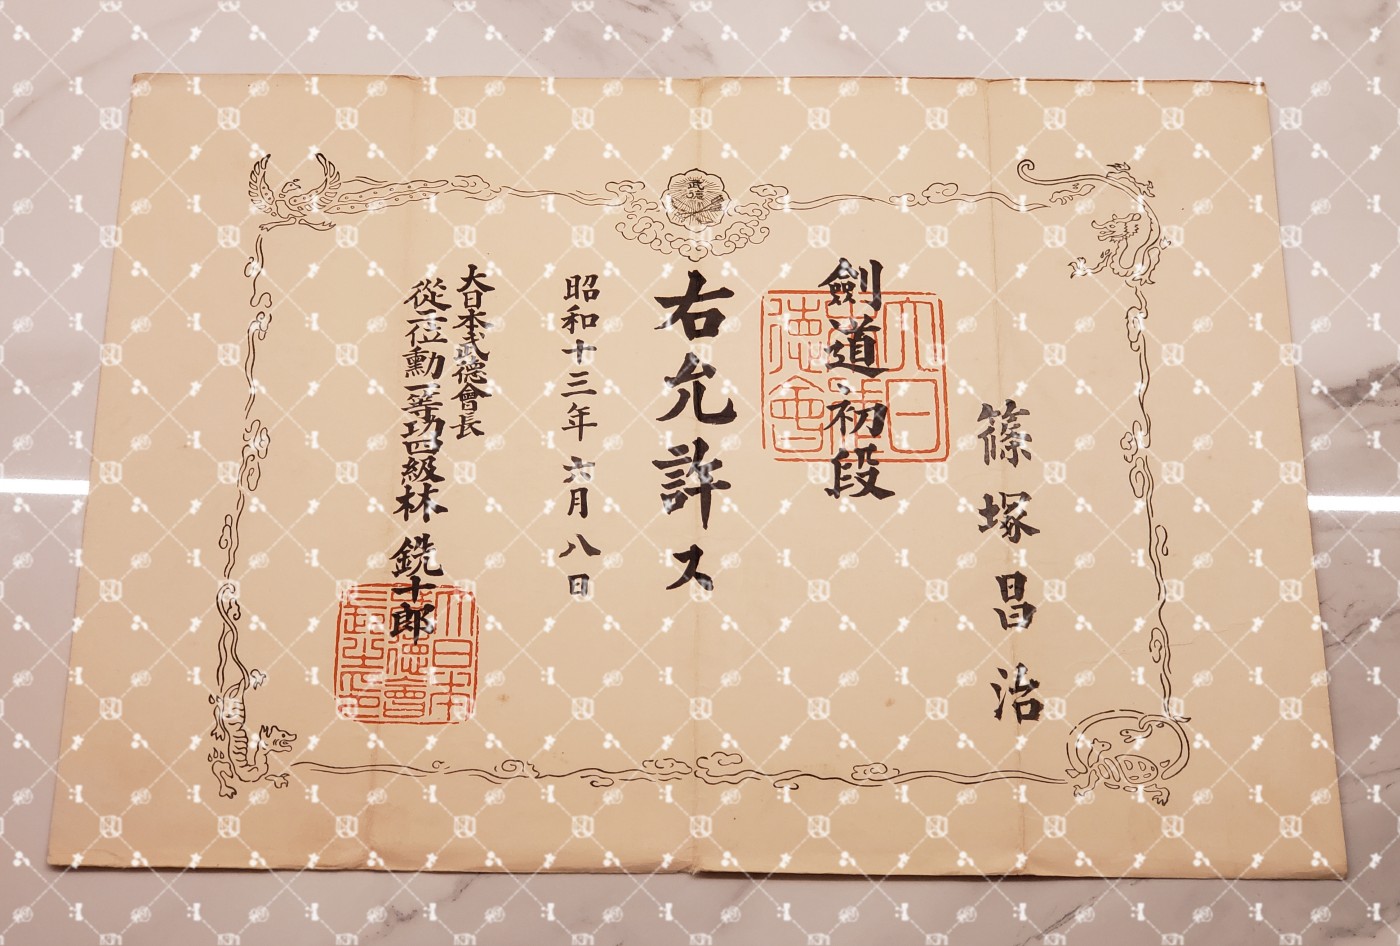 篠塚昌治
劍道初段
右允許ス
昭和十三年六月八日
大日本武德會長
從二位勳一等功四級林銑十郎
武徳
大日本武德會
大日本武德會